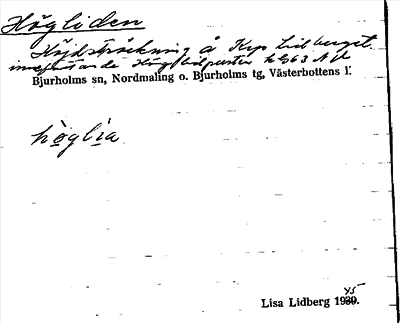 Högliden
Höjdsträckning å Kyrkliberget
innefattande Höglidpunkten h 363 NV
Bjurholms sn, Nordmaling o. Bjurholms tg, Västerbottens l.
hòglìa
45
Lisa Lidberg 1939.